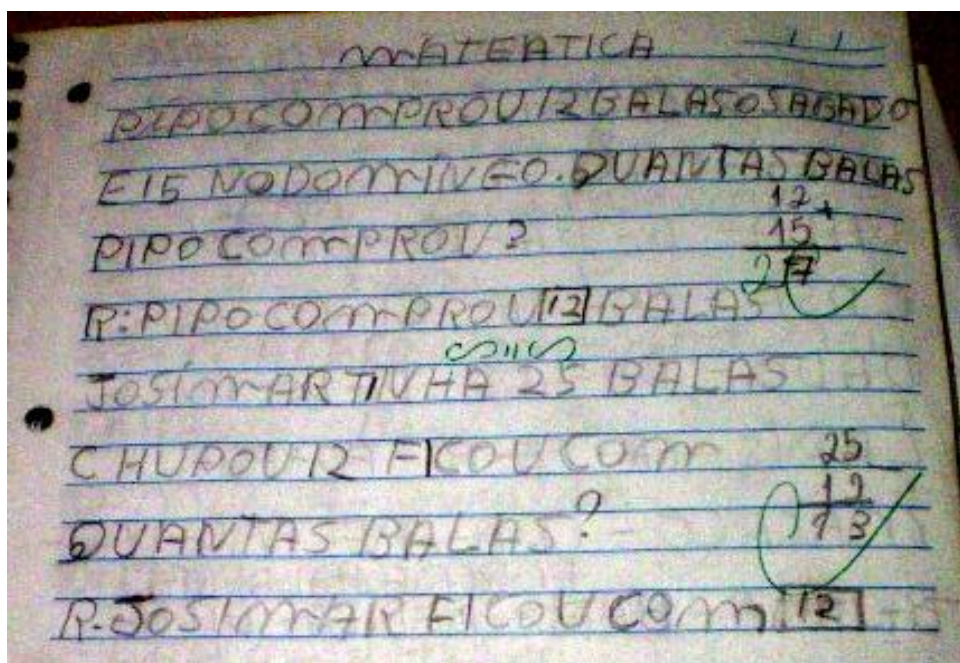 MATEATICA
PIPO COMPROU 12 BALAS O SABADO
E 15 NO DOMINGO. QUANTAS BALAS
PIPO COMPROU?
12+
15
27
R: PIPO COMPROU 12 BALAS
JOSIMAR TINHA 25 BALAS
CHUPOU 12 FICOU COM
25
12
13
QUANTAS BALAS?
R- JOSIMAR FICOU COM 12